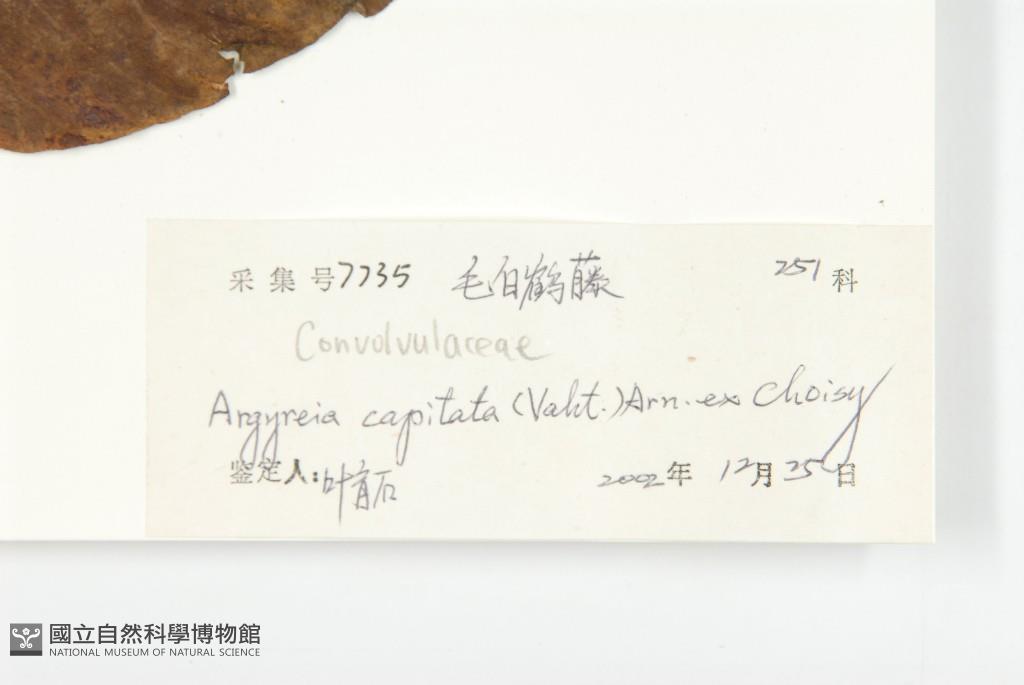 采集号7735 毛白鹤藤 251科
Convolvulaceae
Argyreia capitata (Vaht.) Arn. ex Choisy
鉴定人:叶育石 2002年12月25日
國立自然科學博物館
NATIONAL MUSEUM OF NATURAL SCIENCE